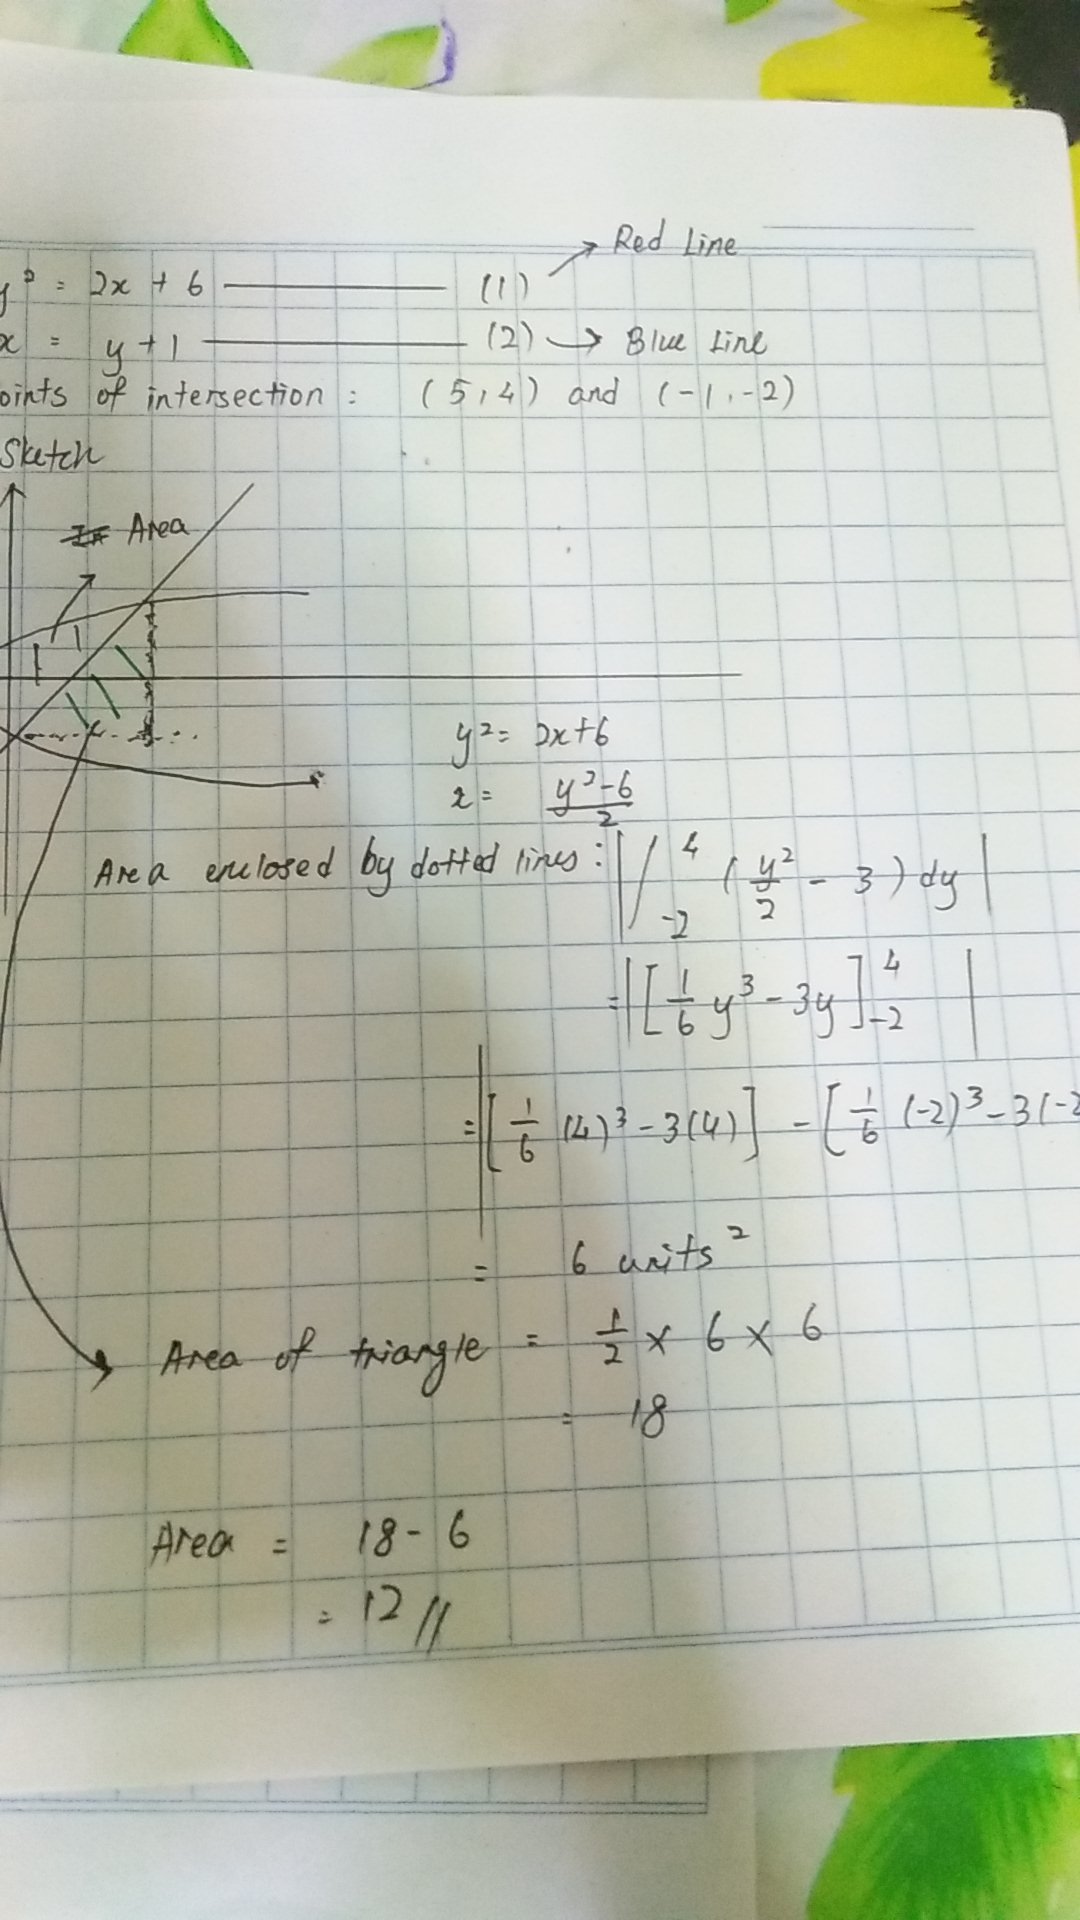 Red Line
y² = 2x + 6 (1)
x = y + 1 (2) → Blue Line
oints of intersection : (5,4) and (-1,-2)
Sketch
Area
y² = 2x+6
x = y²-6 / 2
Area enclosed by dotted lines : | ∫ 4 -2 ( y²/2 - 3 ) dy |
= | [ 1/6 y³ - 3y ] 4 -2 |
= | [ 1/6 (4)³ - 3(4) ] - [ 1/6 (-2)³ - 3(-2
= 6 units²
Area of triangle = 1/2 × 6 × 6
= 18
Area = 18 - 6
= 12 //